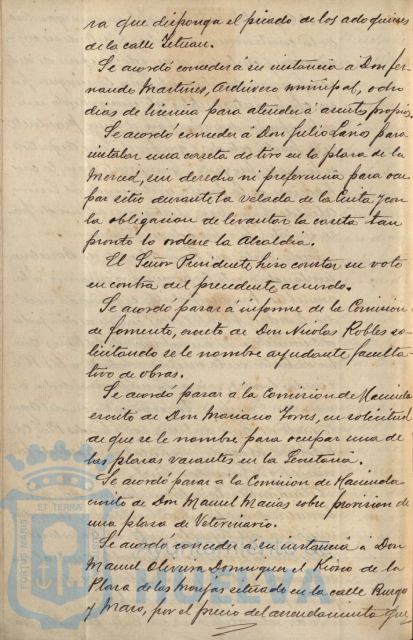 ra que disponga el picado de los adoquines
de la calle Tetuan.
Se acordó conceder á su instancia á Don Fer-
nando Martinez, Archivero municipal, ocho
dias de licencia para atender á asuntos propios.
Se acordó conceder á Don Julio Laños para
instalar una caseta de tiro en la plaza de la
Merced, sin derecho ni preferencia para ocu-
par sitio durante la velada de la Cinta y con
la obligacion de levantar la caseta tan
pronto lo ordene la Alcaldia.
El Señor Presidente hizo constar su voto
en contra del precedente acuerdo.
Se acordó pasar á informe de la Comision
de fomento, escrito de Don Nicolas Robles so-
licitando se le nombre ayudante faculta-
tivo de obras.
Se acordó pasar á la Comision de Hacienda
escrito de Don Mariano Torres, en solicitud
de que se le nombre para ocupar una de
las plazas vacantes en la
Se acordó pasar á la Comision de Hacienda
escrito de Don Manuel Macias sobre provision de
una plaza de Veterinario.
Se acordó conceder á su instancia á Don
Manuel Olivera Dominguez el Kiosco de la
Plaza de las Monjas situado en la calle Burgo
y Mazo, por el precio del arrendamiento que
ET TERRA
PORTUS MARIS